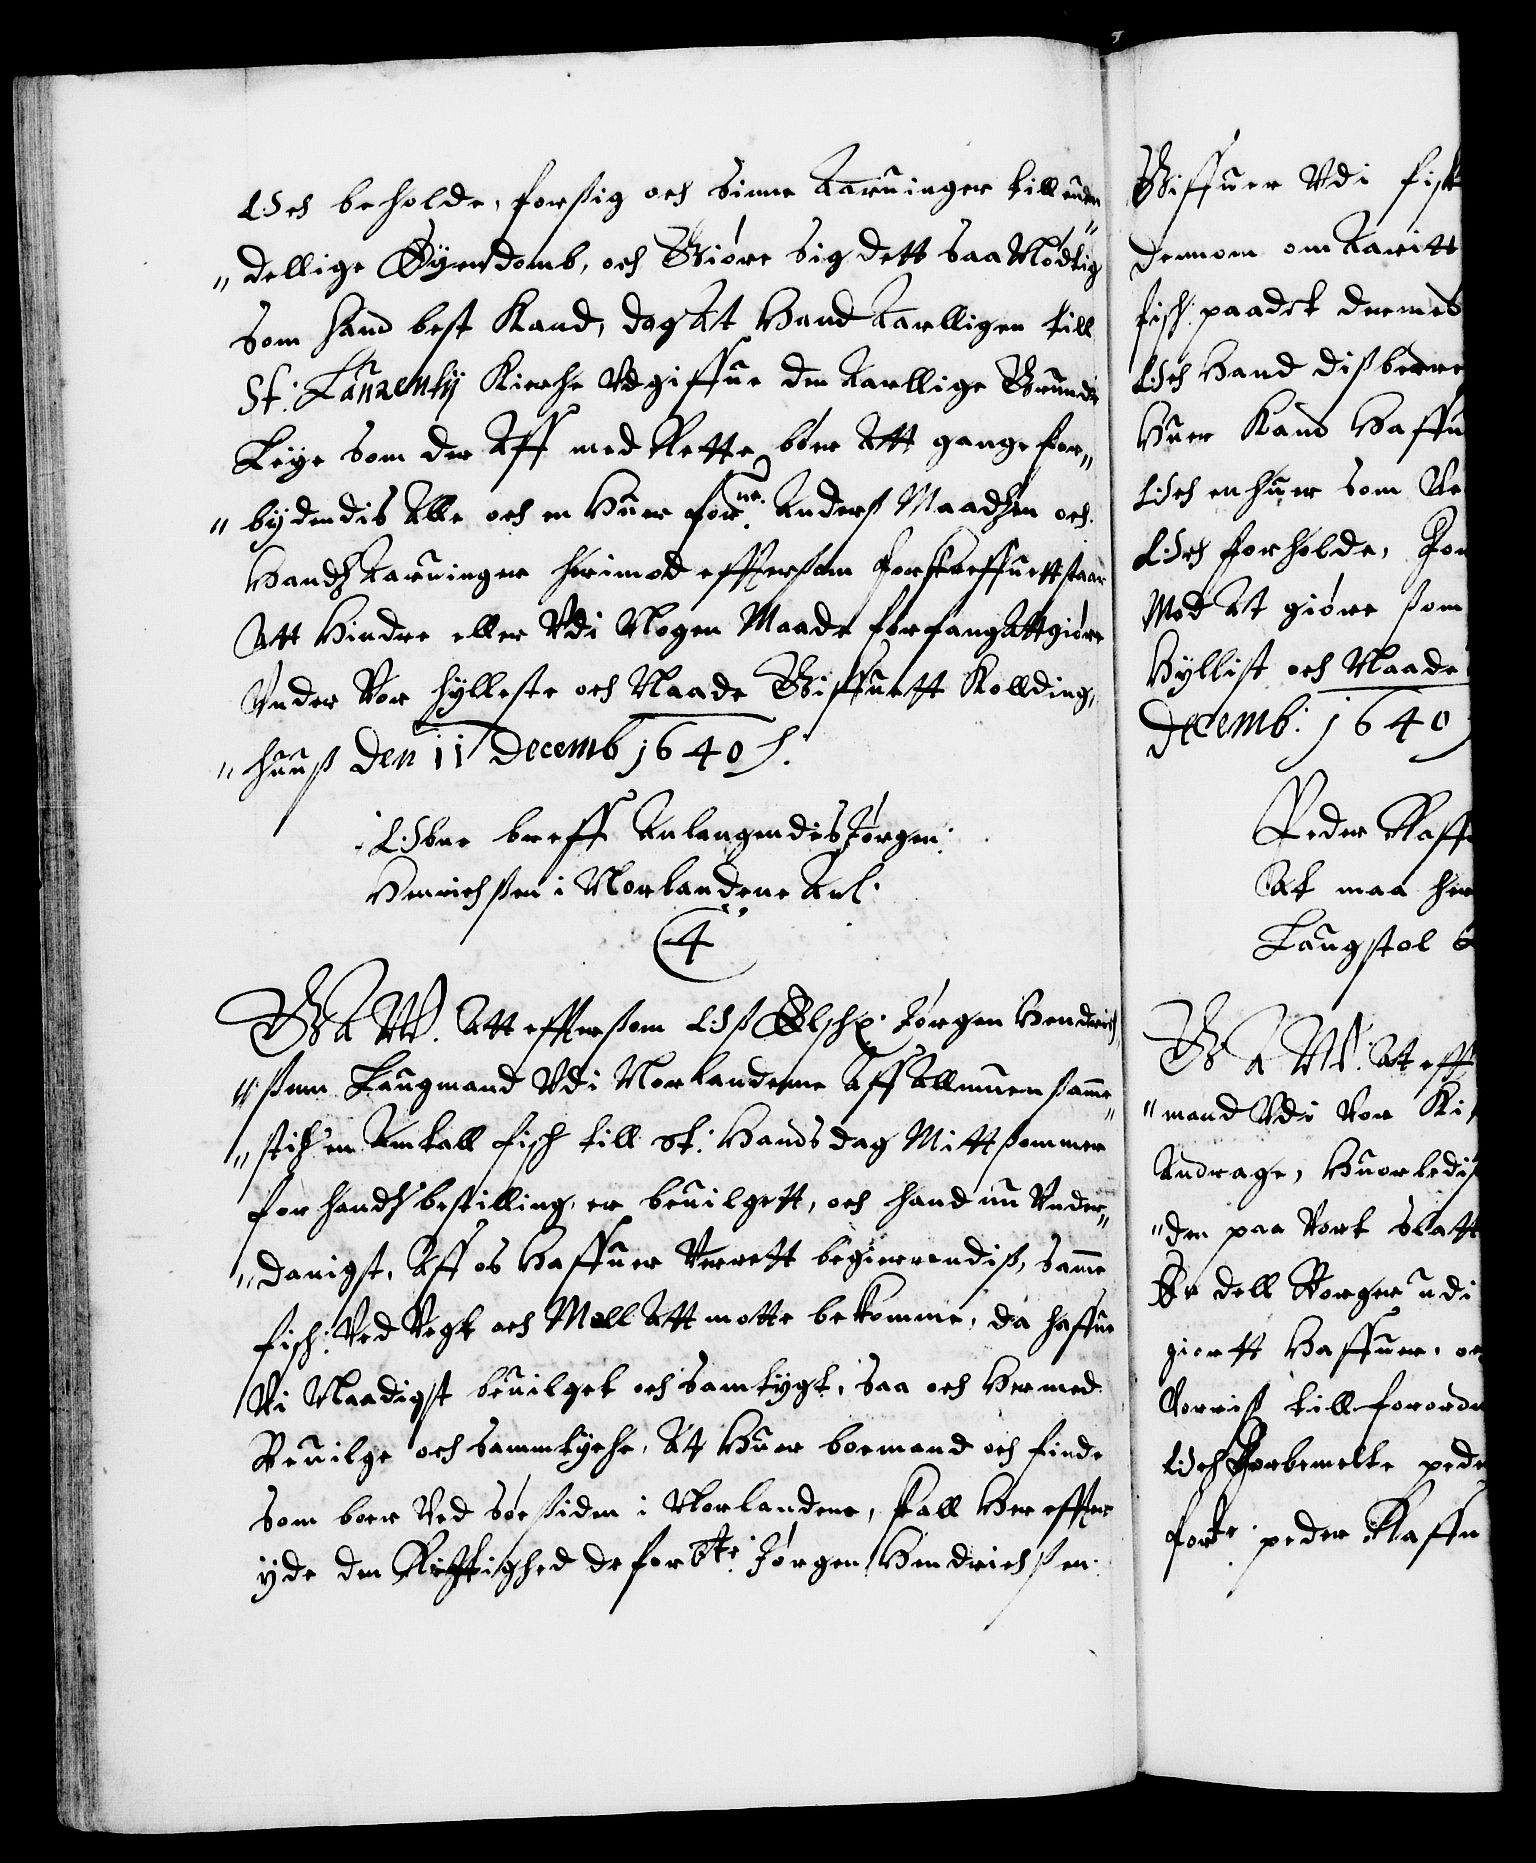 Och beholde, forsig och sinne Aruinger till euden
" dellige Eyendomb, och Giøre sig dett saa Nødtig
som hand best Kand, dog At Hand Aarlligen till
St: Laurentij Kierche Vdgiffue den Aarllige Grunde
Leye som der Aff med Rette bør Att gange for"
" bydendis Alle och en Huer forne: Anders Maadsen och
Hands Aruinger herimod efftersom forskreffuett staar
Att Hindre eller Vdi Nogen Maade forfang Att giøre
Vnder Vor hylleste och Naade Giffuett Kollding,
" huus den 11 Decemb 1640.
Obne breff Anlangendis Jørgen
Henrichssen i Norlandene Anl.
4
G A W. Att effttersom Oss Elsche: Jørgen Hendrich
" ssenn Laugmand Vdi Norlandenne Aff Allmuen samme"
" stitz en Antall fisch till St: Hands dag Mittsommer
for hands bestilling, er beuilgett, och hand nu Vnder"
" danigst, Aff os Haffuer Verrett begierrendiss, samme
fisch: Ved Vegt och Maall Att motte bekomme, da haffue
Vi Naadigst beuilget och samtygt, saa och Hermed
Beuilge och sammtyche, At Huer boemand och finde
som boer Ved søe siden i Norlandene, skall Her effter
yde den Rettighed de forbte: Jørgen Hendrichssen

Giffuer Vdi fisk
dennom om Aaritt
fisch: paadet dennes
Och Hand diss bedre
Huer Kand Haffu
Och enhuer som Ve
Och forholde, For
Mod At giøre som
Hyllist och Naade
Decemb: 1640
Peder Raff
At maa her
Laugstol
G A W: At eff
" mand Vdi Vor Ki
Andrage, Huorledis
" den paa Vort slatt
En dell Borger udi
giortt Haffuer, oc
Vorriss till forordn
Och Forbemelte pede
forte: peder Raffu